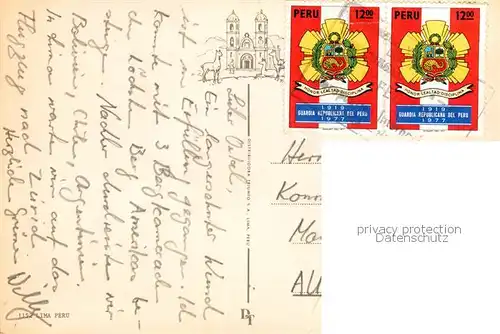 Lieber Onkel,
Ein langersehnter Wunsch
ist in Erfüllung gegangen. Ich
konnte mit 3 Bergkameraden
den höchsten Berg Amerikas be-
steigen. Nachher durchreisten wir
Bolivien, Chile, Argentinien.
In Lima warten wir auf das
Flugzeug nach Zürich.
Herzliche Grüsse Willy
1152 LIMA PERU
DISTRIBUIDORA S.A. LIMA, PERU
PERU 12.00
HONOR LEALTAD DISCIPLINA
1919
GUARDIA REPUBLICANA DEL PERU
1977
PERU 12.00
HONOR LEALTAD DISCIPLINA
1919
GUARDIA REPUBLICANA DEL PERU
1977
Herr
Kon
Ma
AU
privacy protection
Datenschutz